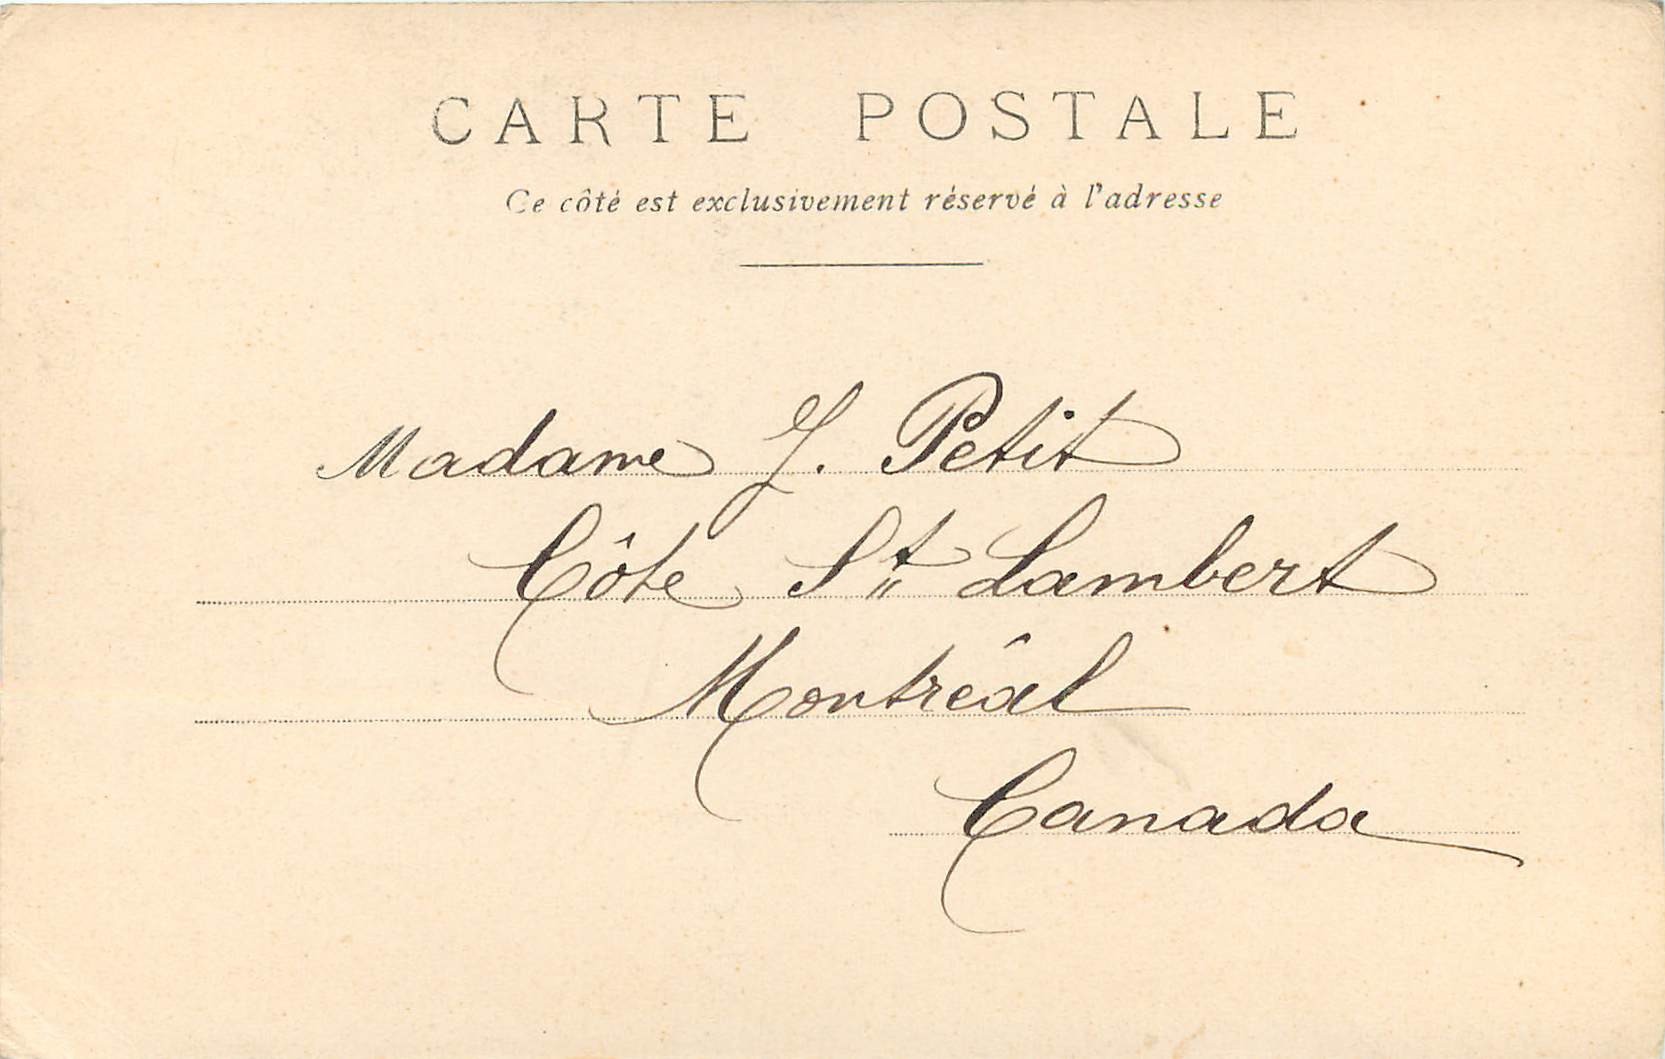 CARTE POSTALE
Ce côté est exclusivement réservé à l'adresse
Madame J. Petit
Côte St Lambert
Montréal
Canada